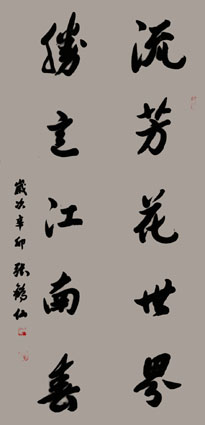 流芳花世界
勝意江南春
歲次辛卯張鶴仙